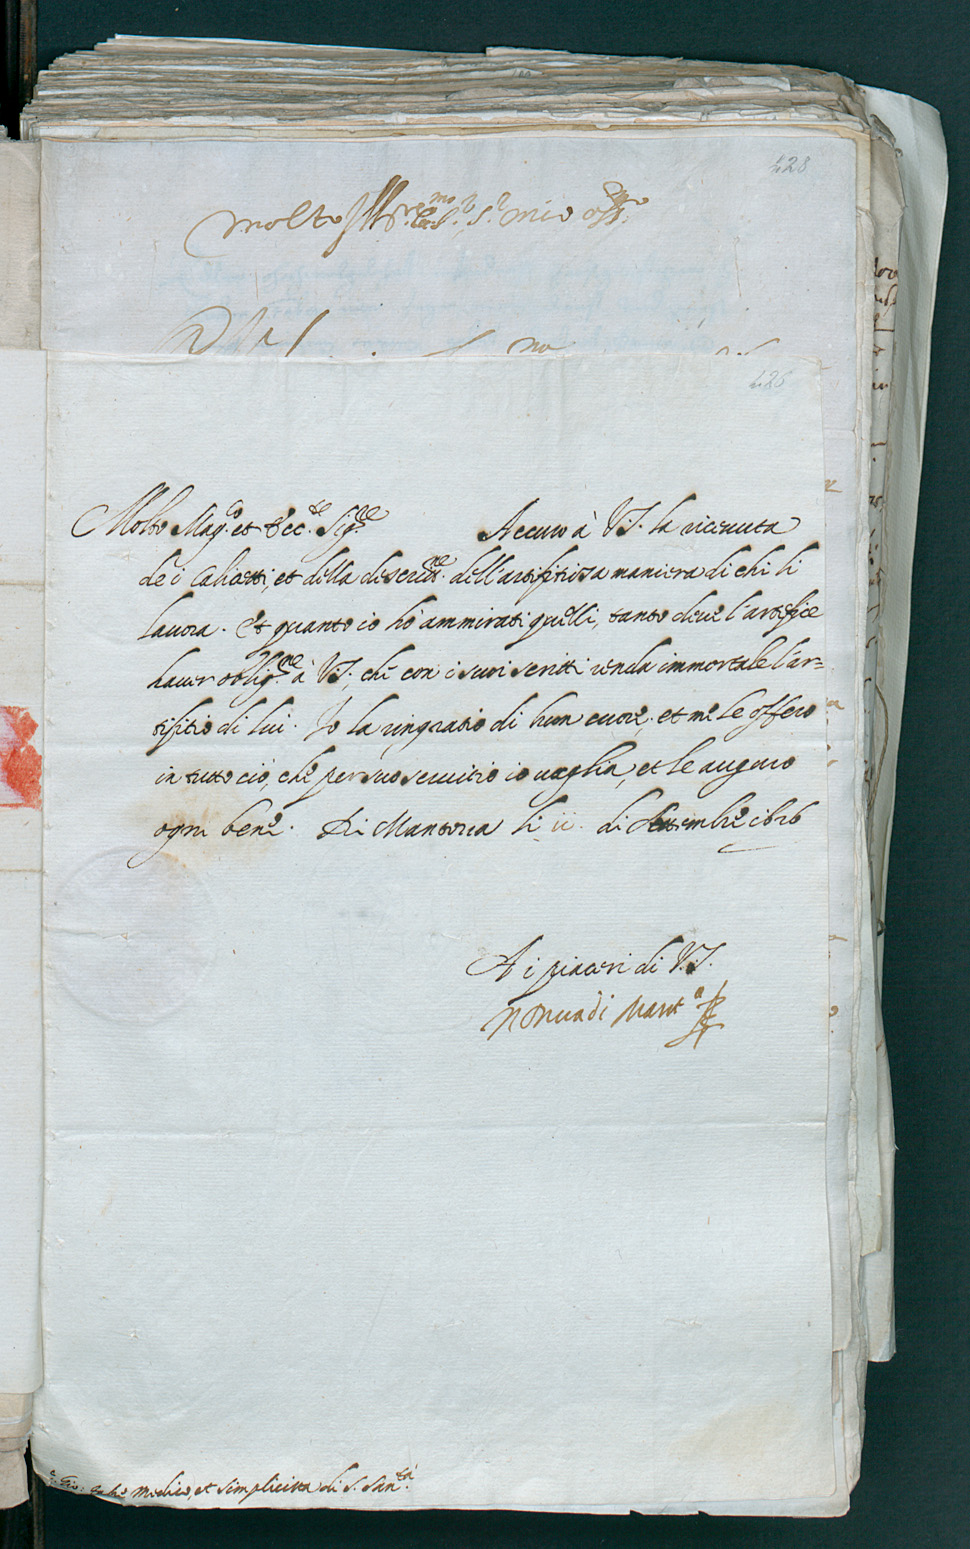 428
Molto Ill.re et S.r mio oss.mo
426
Molto Mag.co et Ecc.te Sig.re Accuso à V.S. la riceuuta
de i Cahatti, et della descritt.ne dell'artifitiosa maniera di chi li
lauora. Et quanto io hò ammirati quelli, tanto deue l'artefice
hauer oblig.ne à V.S., che con i suoi scritti renda immortale l'ar=
tifitio di lui. Io la ringratio di buon cuore, et me le offero
in tutto ciò, che per suo seruitio io uaglia, et le auguro
ogni bene. Di Mantoua li ii. di Settembre 1626
A i piaceri di V.S.
di Mant.a
Medico, et Simplicista di S. San.tà